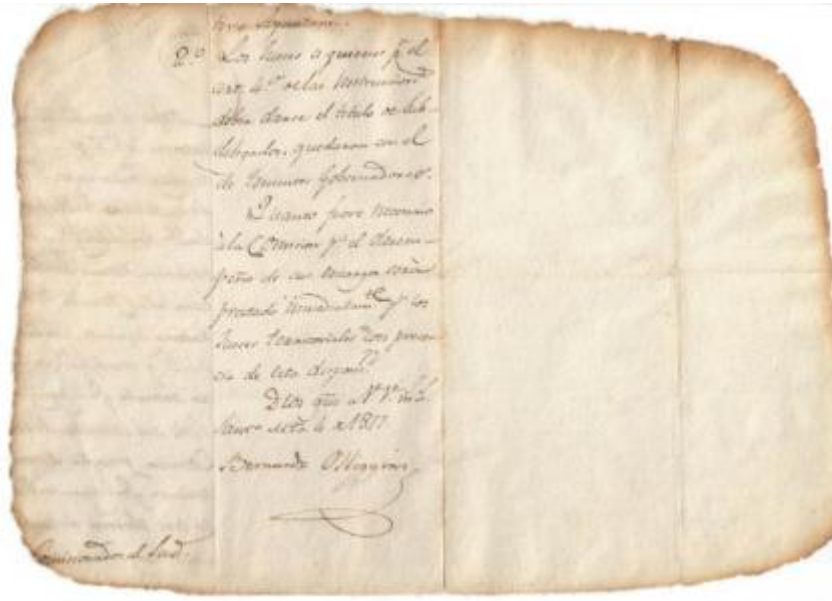 2.º Los Jueces a quienes p.r el
art. 4.º de las Instrucciones
debia darse el titulo de Sub-
delegados, quedaran con el
de Tenientes Gobernadores.
Quanto fuere necesario
à la Comision p.a el desem-
peño de su encargo será
prestado inmediatam.te p.r los
Jueces Territoriales con presen-
cia de esta
Dios gũe a V. m.s a.s
de 1817
Bernardo OHiggins
Comisionados al Sud.